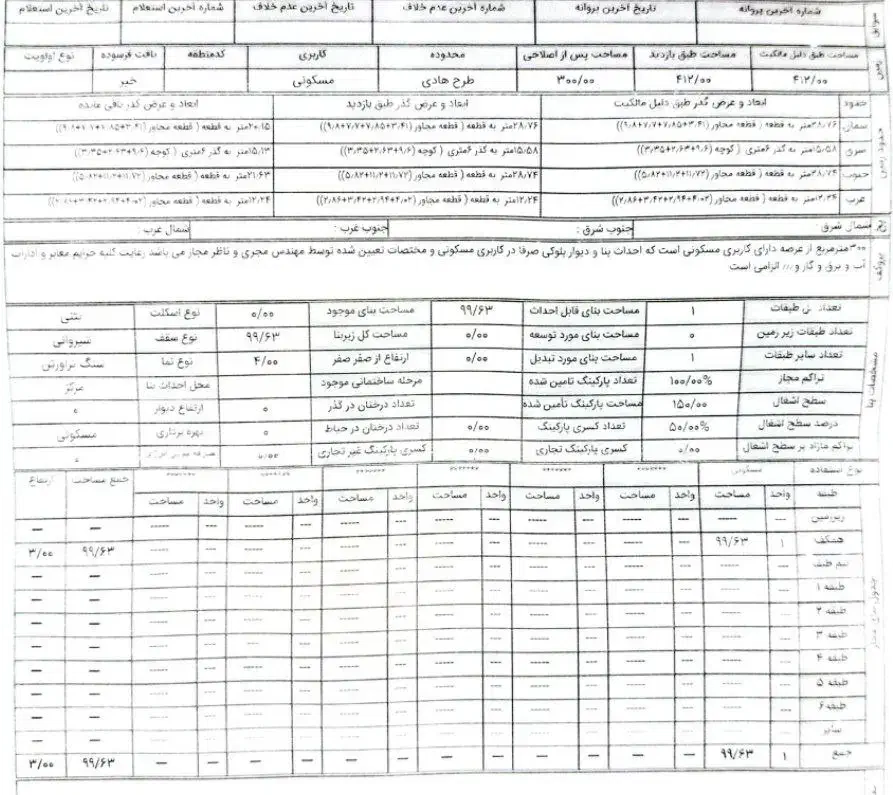 سوابق شماره آخرین پروانه تاریخ آخرین پروانه شماره آخرین عدم خلاف تاریخ آخرین عدم خلاف شماره آخرین استعلام تاریخ آخرین استعلام
زمین مساحت طبق دلیل مالکیت مساحت طبق بازدید مساحت پس از اصلاحی محدوده کاربری کدمنطقه بافت فرسوده نوع اولویت
۴۱۲/۰۰ ۴۱۲/۰۰ ۳۰۰/۰۰ طرح هادی مسکونی خیر
حدود ابعاد و عرض گذر طبق دلیل مالکیت ابعاد و عرض گذر طبق بازدید ابعاد و عرض گذر باقی مانده
شمال ۲۸،۷۶متر به قطعه ( قطعه مجاور (۹،۸+۷،۷+۷،۸۵+۳،۴۱)) ۲۸،۷۶متر به قطعه ( قطعه مجاور (۹،۸+۷،۷+۷،۸۵+۳،۴۱)) ۲۰،۱۵متر به قطعه ( قطعه مجاور
شرق ۱۵،۵۸متر به گذر ۶متری ( کوچه (۳،۳۵+۲،۶۳+۹،۶)) ۱۵،۵۸متر به گذر ۶متری ( کوچه (۳،۳۵+۲،۶۳+۹،۶)) ۱۵،۱۳متر به گذر ۶متری ( کوچه (۳،۳۵+۲،۶۳+۹،۶))
جنوب ۲۸،۷۴متر به قطعه ( قطعه مجاور (۵،۸۲+۱۱،۲+۱۱،۷۲)) ۲۸،۷۴متر به قطعه ( قطعه مجاور (۵،۸۲+۱۱،۲+۱۱،۷۲)) ۲۱،۶۳متر به قطعه ( قطعه مجاور (۵،۸۲+۱۱،۲+۱۱،۷۲))
غرب ۱۲،۲۴متر به قطعه ( قطعه مجاور (۲،۸۶+۳،۴۲+۲،۹۴+۴،۰۲)) ۱۲،۲۴متر به قطعه ( قطعه مجاور (۲،۸۶+۳،۴۲+۲،۹۴+۴،۰۲)) ۱۲،۲۴متر به قطعه ( قطعه مجاور
شمال شرق : جنوب شرق : جنوب غرب : شمال غرب :
۳۰۰مترمربع از عرصه دارای کاربری مسکونی است که احداث بنا و دیوار بلوکی صرفا در کاربری مسکونی و مختصات تعیین شده توسط مهندس مجری و ناظر مجاز می باشد رعایت کلیه حریم معابر و ادارات
آب و برق و گاز و... الزامی است
مشخصات بنا
تعداد کل طبقات ۱ مساحت بنای قابل احداث ۹۹/۶۳ مساحت بنای موجود ۰/۰۰ نوع اسکلت بتنی
تعداد طبقات زیر زمین ۰ مساحت بنای مورد توسعه ۰/۰۰ مساحت کل زیربنا ۹۹/۶۳ نوع سقف شیروانی
تعداد سایر طبقات ۱ مساحت بنای مورد تبدیل ۰/۰۰ ارتفاع از صفر صفر ۴/۰۰ نوع نما سنگ تراورتن
تراکم مجاز ۱۰۰/۰۰% تعداد پارکینگ تامین شده مرحله ساختمانی موجود محل احداث بنا مرکز
سطح اشغال ۱۵۰/۰۰ مساحت پارکینگ تأمین شده تعداد درختان در گذر ۰ ارتفاع دیوار ۰
درصد سطح اشغال ۵۰/۰۰% تعداد کسری پارکینگ ۰/۰۰ تعداد درختان در حیاط ۰ بهره برداری مسکونی
تراکم مازاد بر سطح اشغال ۰/۰۰ کسری پارکینگ تجاری ۰/۰۰ کسری پارکینگ غیر تجاری ۰/۰۰ ۰
نوع استفاده مسکونی جمع مساحت ارتفاع
طبقه واحد مساحت واحد مساحت واحد مساحت واحد مساحت واحد مساحت واحد مساحت
زیرزمین --- ----- --- ----- --- ----- --- ----- --- ----- --- ----- — —
همکف ۱ ۹۹/۶۳ --- ----- --- ----- --- ----- --- ----- --- ----- ۹۹/۶۳ ۳/۰۰
نیم طبقه --- ----- --- ----- --- ----- --- ----- --- ----- --- ----- — —
طبقه ۱ --- ----- --- ----- --- ----- --- ----- --- ----- --- ----- — —
طبقه ۲ --- ----- --- ----- --- ----- --- ----- --- ----- --- ----- — —
طبقه ۳ --- ----- --- ----- --- ----- --- ----- --- ----- --- ----- — —
طبقه ۴ --- ----- --- ----- --- ----- --- ----- --- ----- --- ----- — —
طبقه ۵ --- ----- --- ----- --- ----- --- ----- --- ----- --- ----- — —
طبقه ۶ --- ----- --- ----- --- ----- --- ----- --- ----- --- ----- — —
سایر --- ----- --- ----- --- ----- --- ----- --- ----- --- ----- — —
جمع ۱ ۹۹/۶۳ — — — — — — — — — — ۹۹/۶۳ ۳/۰۰